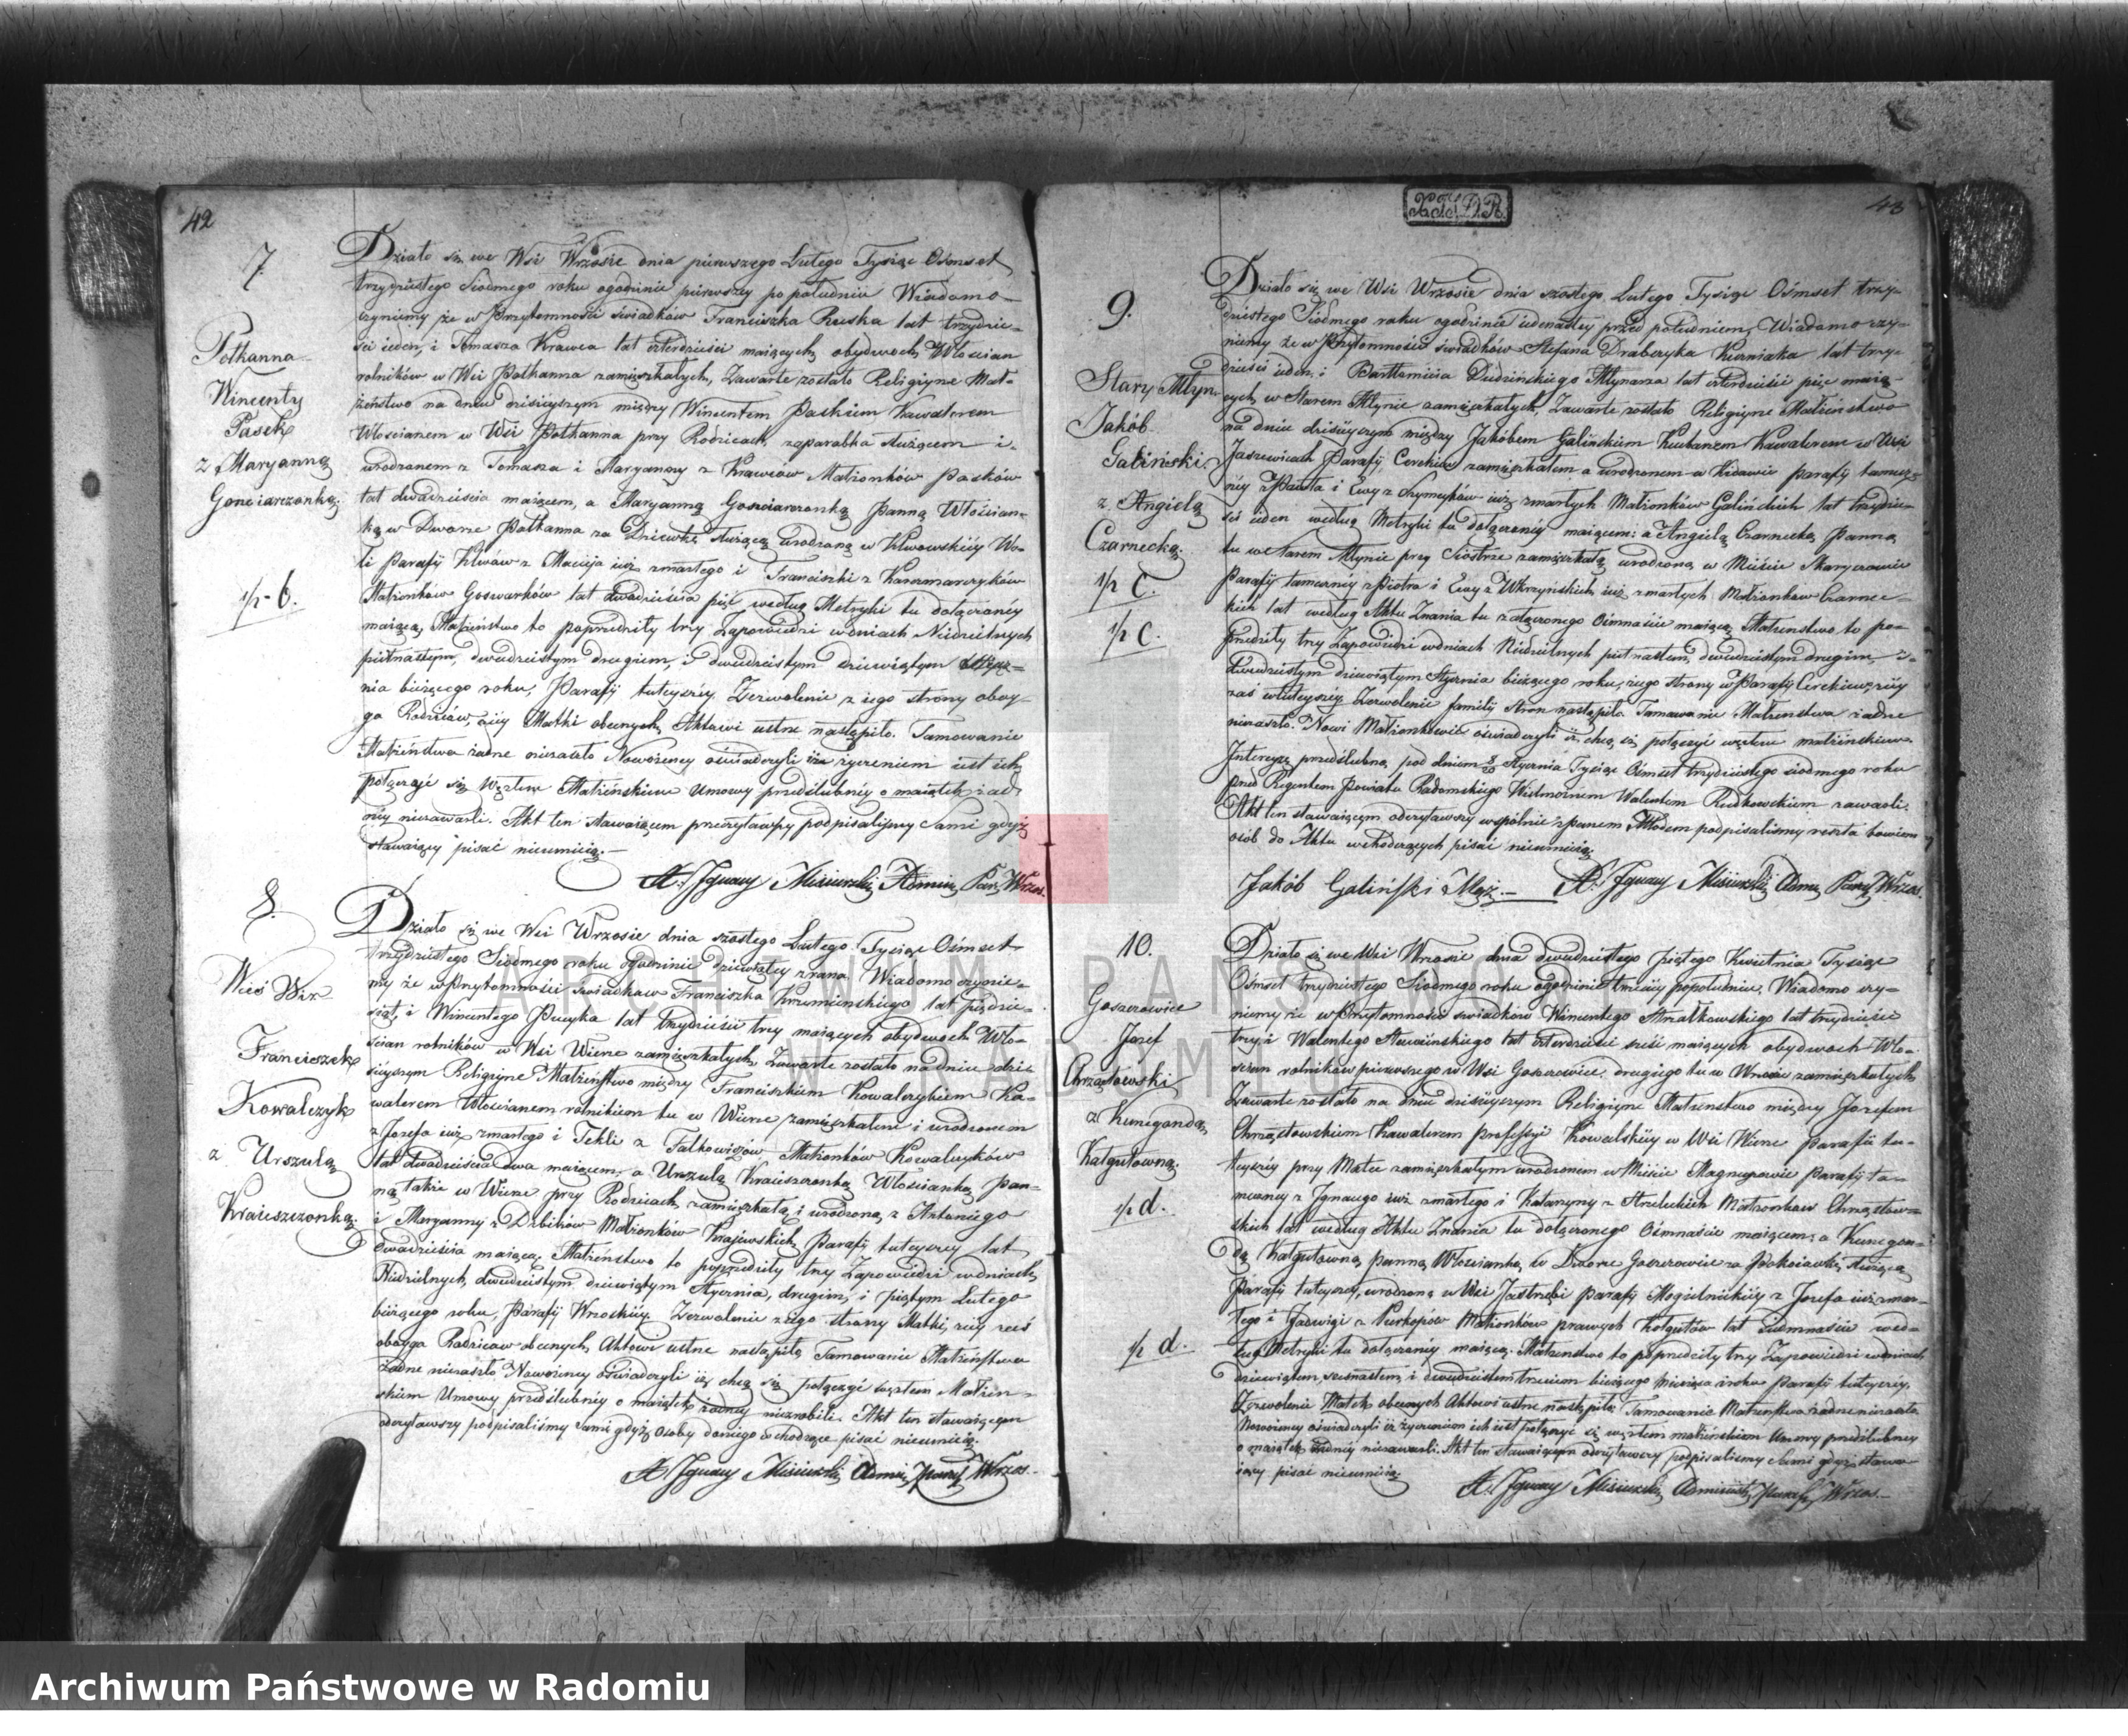 42
7.
Potkanna
Wincenty
Pasek
z Maryanną
Gonciarczonką.
1/2 b.
Działo się we Wsi Wrzosie dnia pierwszego Lutego Tysiąc Osmset
trzydziestego Siódmego roku ogodzinie pierwszey po południu Wiadomo
czyniemy że w Przytomności świadków Franciszka Reska lat trzydzie-
sci ieden, i Tomasza Krawca lat czterdzieści maiących obydwoch Włościan
rolników w Wsi Potkanna zamięszkałych, Zawarte zostało Religiyne Mał-
żeństwo na dniu dzisieyszym między Wincentem Paskiem Kawalerem
Włościanem w Wsi Potkanna przy Rodzicach zaparobka służącem i
urodzonem z Tomasza i Maryanny z Krawców Małżonków Pasków
lat dwadzieścia maiącem, a Maryanną Gonciarczonką Panną Włościan-
ką w Dworze Potkanna za Dziewkę służącą urodzoną w Klwowskiey Wo-
li Parafij Klwów z Macieja iuż zmarłego i Franciszki z Karczmarczyków
Małżonków lat dwadzieścia pięć według Metryki tu dołączoney
maiącą, Małżeństwo to poprzedziły trzy Zapowiedzi wdniach Niedzielnych
piętnastym, dwudziestym drugiem, i dwudziestym dziewiątym Stycz-
nia bieżącego roku, Parafij tuteyszey. Zezwolenie z iego strony oboy-
ga Rodziców, iey Matki obecnych Aktowi ustne nastąpiło. Tamowanie
Małżeństwa żadne niezaszło Nowożeńcy oświadczyli iż życzeniem iest ich
połączyć się Węzłem Małżeńskiem Umowy przedślubney o maiątek żad-
ney niezawarli. Akt ten stawaiącem przeczytawszy podpisaliśmy Sami gdyż
stawaiący pisać nieumieią.
X. Ignacy Misiewski Admin. Par. Wrzos.
8.
Wieś Wir
Franciszek
Kowalczyk
z Urszulą
Kraieszczonką.
Działo się we Wsi Wrzosie dnia szostego Lutego Tysiąc Ośmset
trzydziestego Siódmego roku ogodzinie dziewiątey zrana. Wiadomo czynie-
my że wPrzytomności świadków Franciszka Krzemienskiego lat pięćdzie-
siąt, i Wincentego Pucyka lat trzydzieści trzy maiących obydwoch Wło-
ścian rolników w Wsi Wierze zamięszkałych, Zawarte zostało nadniu dzi-
sieyszym Religiyne Małżeństwo między Franciszkiem Kowalczykiem Ka-
walerem Włościanem rolnikiem tu w Wierze zamięszkałem i urodzonem
z Jozefa iuż zmarłego i Tekli z Falkowiczów Małżonków Kowalczyków
lat dwadzieścia dwa maiącem, a Urszulą Kraieszczonką Włościanką Pan-
ną także w Wierze przy Rodzicach zamięszkałą i urodzoną z Antoniego
i Maryanny z Dzbików Małżonków Krajewskich Parafij tuteyszey lat
dwadzieścia maiącą. Małżeństwo to poprzedziły trzy Zapowiedzi wdniach
Niedzielnych, dwudziestym dziewiątym Stycznia, drugim, i piątym Lutego
bieżącego roku, Parafij Wrzoskiey. Zezwolenie ziego strony Matki, iey zaś
oboyga Rodziców obecnych, Aktowi ustne nastąpiło Tamowanie Małżeństwa
żadne niezaszło Nowożeńcy oświadczyli iż chcą się połączyć węzłem Małżen-
skiem Umowy przedślubney o maiątek żadney niezrobili. Akt ten stawaiącym
odczytawszy podpisaliśmy Sami gdyż osoby doniego wchodzące pisać nieumieią.
X. Ignacy Misiewski Admin. Paraf. Wrzos.
43
9.
Stary Młyn.
Jakób
Galiński.
z Angielą
Czarnecką.
1/2 C.
1/2 C.
Działo się we Wsi Wrzosie dnia szostego Lutego Tysiąc Ośmset trzy-
dziestego Siódmego roku ogodzinie iedenastey przed południem, Wiadomo czy-
niemy że w Przytomności świadków Stefana Drabczyka Kurniaka lat trzy-
dzieści ieden i Bartłomieia Dudzińskiego Młynarza lat czterdzieści pięć maią-
cych w Starem Młynie zamięszkałych, Zawarte zostało Religiyne Małżeństwo
na dniu dzisieyszym między Jakóbem Galińskiem Kawalerem w Wsi
Jaszowicach Parafij Cerekiew zamięszkałem a urodzonem w Parafij tameż-
ney z Pawła i Ewy z Szymczyków iuż zmarłych Małżonków Galińskich lat trzydzie-
ści ieden według Metryki tu dołączoney maiącem; a Angielą Czarnecką Panną
tu w Starem Młynie przy Siostrze zamięszkałą urodzoną w Mieście Skaryszewie
Parafij tameczney z Piotra i Ewy z Wkrzyńskich iuż zmarłych Małżonków Czarnec-
kich lat według Aktu Znania tu załączonego Ośmnaście maiącą Małżeństwo to po-
przedziły trzy Zapowiedzi wdniach Niedzielnych piętnastem, dwudziestym drugim, i
dwudziestym dziewiątym Stycznia bieżącego roku, ziego strony w Parafij Cerekiew, iey
zaś w tuteyszey. Zezwolenie familij stron nastąpiło. Tamowanie Małżeństwa żadne
niezaszło. Nowi Małżonkowie oświadczyli iż chcą się połączyć węzłem małżeńskiem
Intercyzę przedślubną pod dniem 8/20 Stycznia Tysiąc Ośmset trzydziestego siodmego roku
przed Regentem Powiatu Radomskiego Wielmożnem Walentem Rudkowskiem zawarli.
Akt ten stawaiącym odczytawszy wspólnie zPanem Młodem podpisaliśmy reszta bowiem
osób do Aktu wchodzących pisać nieumieią.
Jakób Galiński Mąż. X. Ignacy Misiewski Admin. Paraf. Wrzos.
10.
Goszczowice
Jozef
Chrząstowski
z Kunegondą
Kałgutowną.
1/2 d.
1/2 d.
Działo się we Wsi Wrzosie dnia dwudziestego piątego Kwietnia Tysiąc
Ośmset trzydziestego Siódmego roku ogodzinie trzeciey popołudniu. Wiadomo czy-
niemy że w Przytomności świadków Wincentego Strzałkowskiego lat trzydzieści
trzy i Walentego lat czterdzieści sześć maiących obydwoch Wło-
scian rolników pierwszego w Wsi Goszczowice, drugiego tu w Wrzosie zamięszkałych
Zawarte zostało na dniu dzisieyszym Religiyne Małżeństwo między Jozefem
Chrząstowskiem Kawalerem professyi Kowalskiey w Wsi Wierze Parafii tu-
teyszey przy Matce zamięszkałym urodzonem w Mieście Magnuszewie Parafij ta-
meczney z Ignacego iuż zmarłego i Katarzyny z Małżonkow Chrząstow-
skich lat według Aktu Znania tu dołączonego Ośmnaście maiącem, a Kunegon-
dą Kałgutowną Panną Włościanką w Dworze Goszczowice za Pokoiówkę służącą
Parafij tuteyszey, urodzoną w Wsi Jastrzębi Parafij Mogielnickiey z Jozefa iuż zmar-
łego i Jadwigi z Małżonków prawych Kołgutów lat Siedmnaście wed-
ług Metryki tu dołączoney maiącą. Małżeństwo to poprzedziły trzy Zapowiedzi wdniach
dziewiątem, szesnastem, i dwudziestem trzeciem bieżącego Miesiąca i roku Parafij tuteyszey.
Zezwolenie Matek obecnych Aktowi ustne nastąpiło. Tamowanie Małżeństwa żadne niezaszło
Nowożeńcy oświadczyli iż życzeniem ich iest połączyć się węzłem małżeńskiem Umowy przedślubney
o maiątek żadney niezawarli. Akt ten stawaiącym odczytawszy podpisaliśmy Sami gdyż stawa-
iący pisać nieumieią.
X. Ignacy Misiewski Administ. Paraf. Wrzos.
ARCHIWUM PAŃSTWOWE
W RADOMIU
Archiwum Państwowe w Radomiu